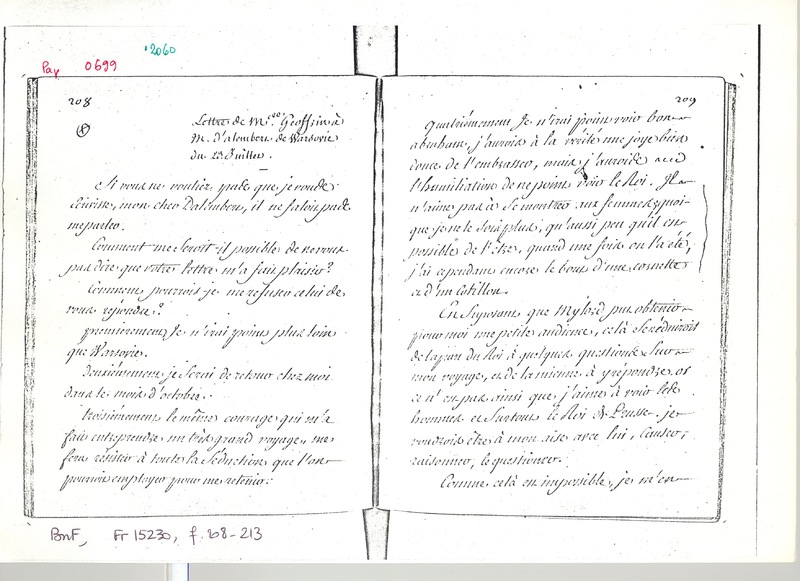 Pay 0699
2060
208
Lettre de M.de Geoffrin à
M. d'alembert de Warsovie
du 23 Juillet.
Si vous ne vouliez pas que je vous
écrivisse, mon cher Dalembert, il ne faloit pas
me parler.
Comment me seroit-il possible de ne vous
pas dire que votre lettre m'a fait plaisir?
Comment pourrois je me refuser celui de
vous répondre?
premièrement, Je n'irai point plus loin
que Warsovie.
Deuxièmement je serai de retour chez moi
dans le mois d'octobre.
troisièmement le même courage qui m'a
fait entreprendre un très grand voyage, me
fera résister à toute la séduction que l'on
pourroit employer pour me retenir.
209
quatrièmement Je n'irai point voir bon
abraham, j'aurois à la vérité une joye bien
douce de l'embrasser, mais j'aurois aussi
l'humiliation de ne point voir le Roi. Il
n'aime pas à se montrer aux femmes, quoi-
que je ne le sois plus, qu'aussi peu qu'il est
possible de l'être, quand une fois on l'a été,
j'ai cependant encore le bout d'une cornette
et d'un cotillon.
En supposant que Mylord put obtenir
pour moi une petite audience, cela se réduiroit
de la part du Roi à quelques questions sur
mon voyage, et de la mienne à y répondre. or
ce n'est pas ainsi que j'aime à voir les
hommes et surtout le Roi de Prusse. je
voudrois être à mon aise avec lui, causer,
raisonner, le questionner.
Comme cela est impossible, je m'en
BnF, Fr 15230, f. 208-213